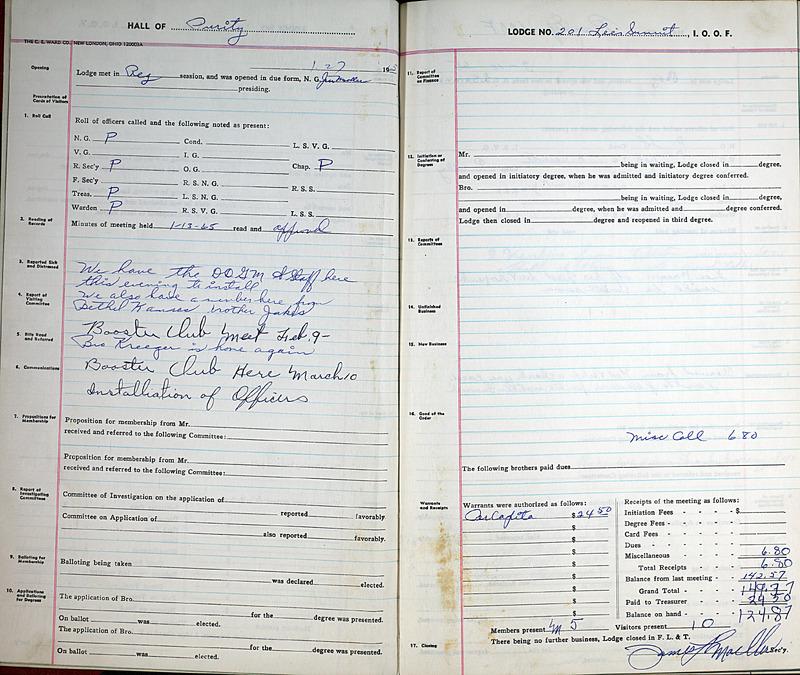 HALL OF Purity
THE C. E. WARD CO., NEW LONDON, OHIO 120003A
Opening
1-27 19
Lodge met in Reg session, and was opened in due form, N. G.
presiding.
Presentation of Cards of Visitors
1. Roll Call
Roll of officers called and the following noted as present:
N. G. P Cond. L. S. V. G.
V. G. I. G.
R. Sec'y P O. G. Chap. P
F. Sec'y R. S. N. G. R. S. S.
Treas. P L. S. N. G.
Warden P R. S. V. G. L. S. S.
2. Reading of Records
Minutes of meeting held 1-13-65 read and approved
3. Reported Sick and Distressed
We have the DDGM & Staff here
this evening to install
4. Report of Visiting Committee
We also have a member here from
Bethel Kansas brother Jakes
5. Bills Read and Referred
Booster Club Meet Feb. 9-
Bro Kreeger is home again
6. Communications
Booster Club Here March 10
Installiation of Officers
7. Propositions for Membership
Proposition for membership from Mr.
received and referred to the following Committee:
Proposition for membership from Mr.
received and referred to the following Committee:
8. Report of Investigating Committees
Committee of Investigation on the application of
reported favorably.
Committee on Application of
also reported favorably.
9. Balloting for Membership
Balloting being taken
was declared elected.
10. Applications and Balloting for Degrees
The application of Bro.
for the degree was presented.
On ballot was elected.
The application of Bro.
for the degree was presented.
On ballot was elected.
LODGE NO. 201 Lee's Summit, I. O. O. F.
11. Report of Committee on Finance
12. Initiation or Conferring of Degrees
Mr.
being in waiting, Lodge closed in degree,
and opened in initiatory degree, when he was admitted and initiatory degree conferred.
Bro.
being in waiting, Lodge closed in degree,
and opened in degree, when he was admitted and degree conferred.
Lodge then closed in degree and reopened in third degree.
13. Reports of Committees
14. Unfinished Business
15. New Business
16. Good of the Order
Misc Coll 6.80
The following brothers paid dues
Warrants and Receipts
Warrants were authorized as follows:
Per Capita $ 24 50
$
$
$
$
$
$
$
$
Receipts of the meeting as follows:
Initiation Fees - - - $
Degree Fees - - - -
Card Fees - - - -
Dues - - - - -
Miscellaneous - - - 6.80
Total Receipts - - 6.80
Balance from last meeting - 142.57
Grand Total - - 149.37
Paid to Treasurer - - 24.50
Balance on hand - - 124.87
Members present 5 Visitors present 10
There being no further business, Lodge closed in F. L. & T.
17. Closing
Sec'y.